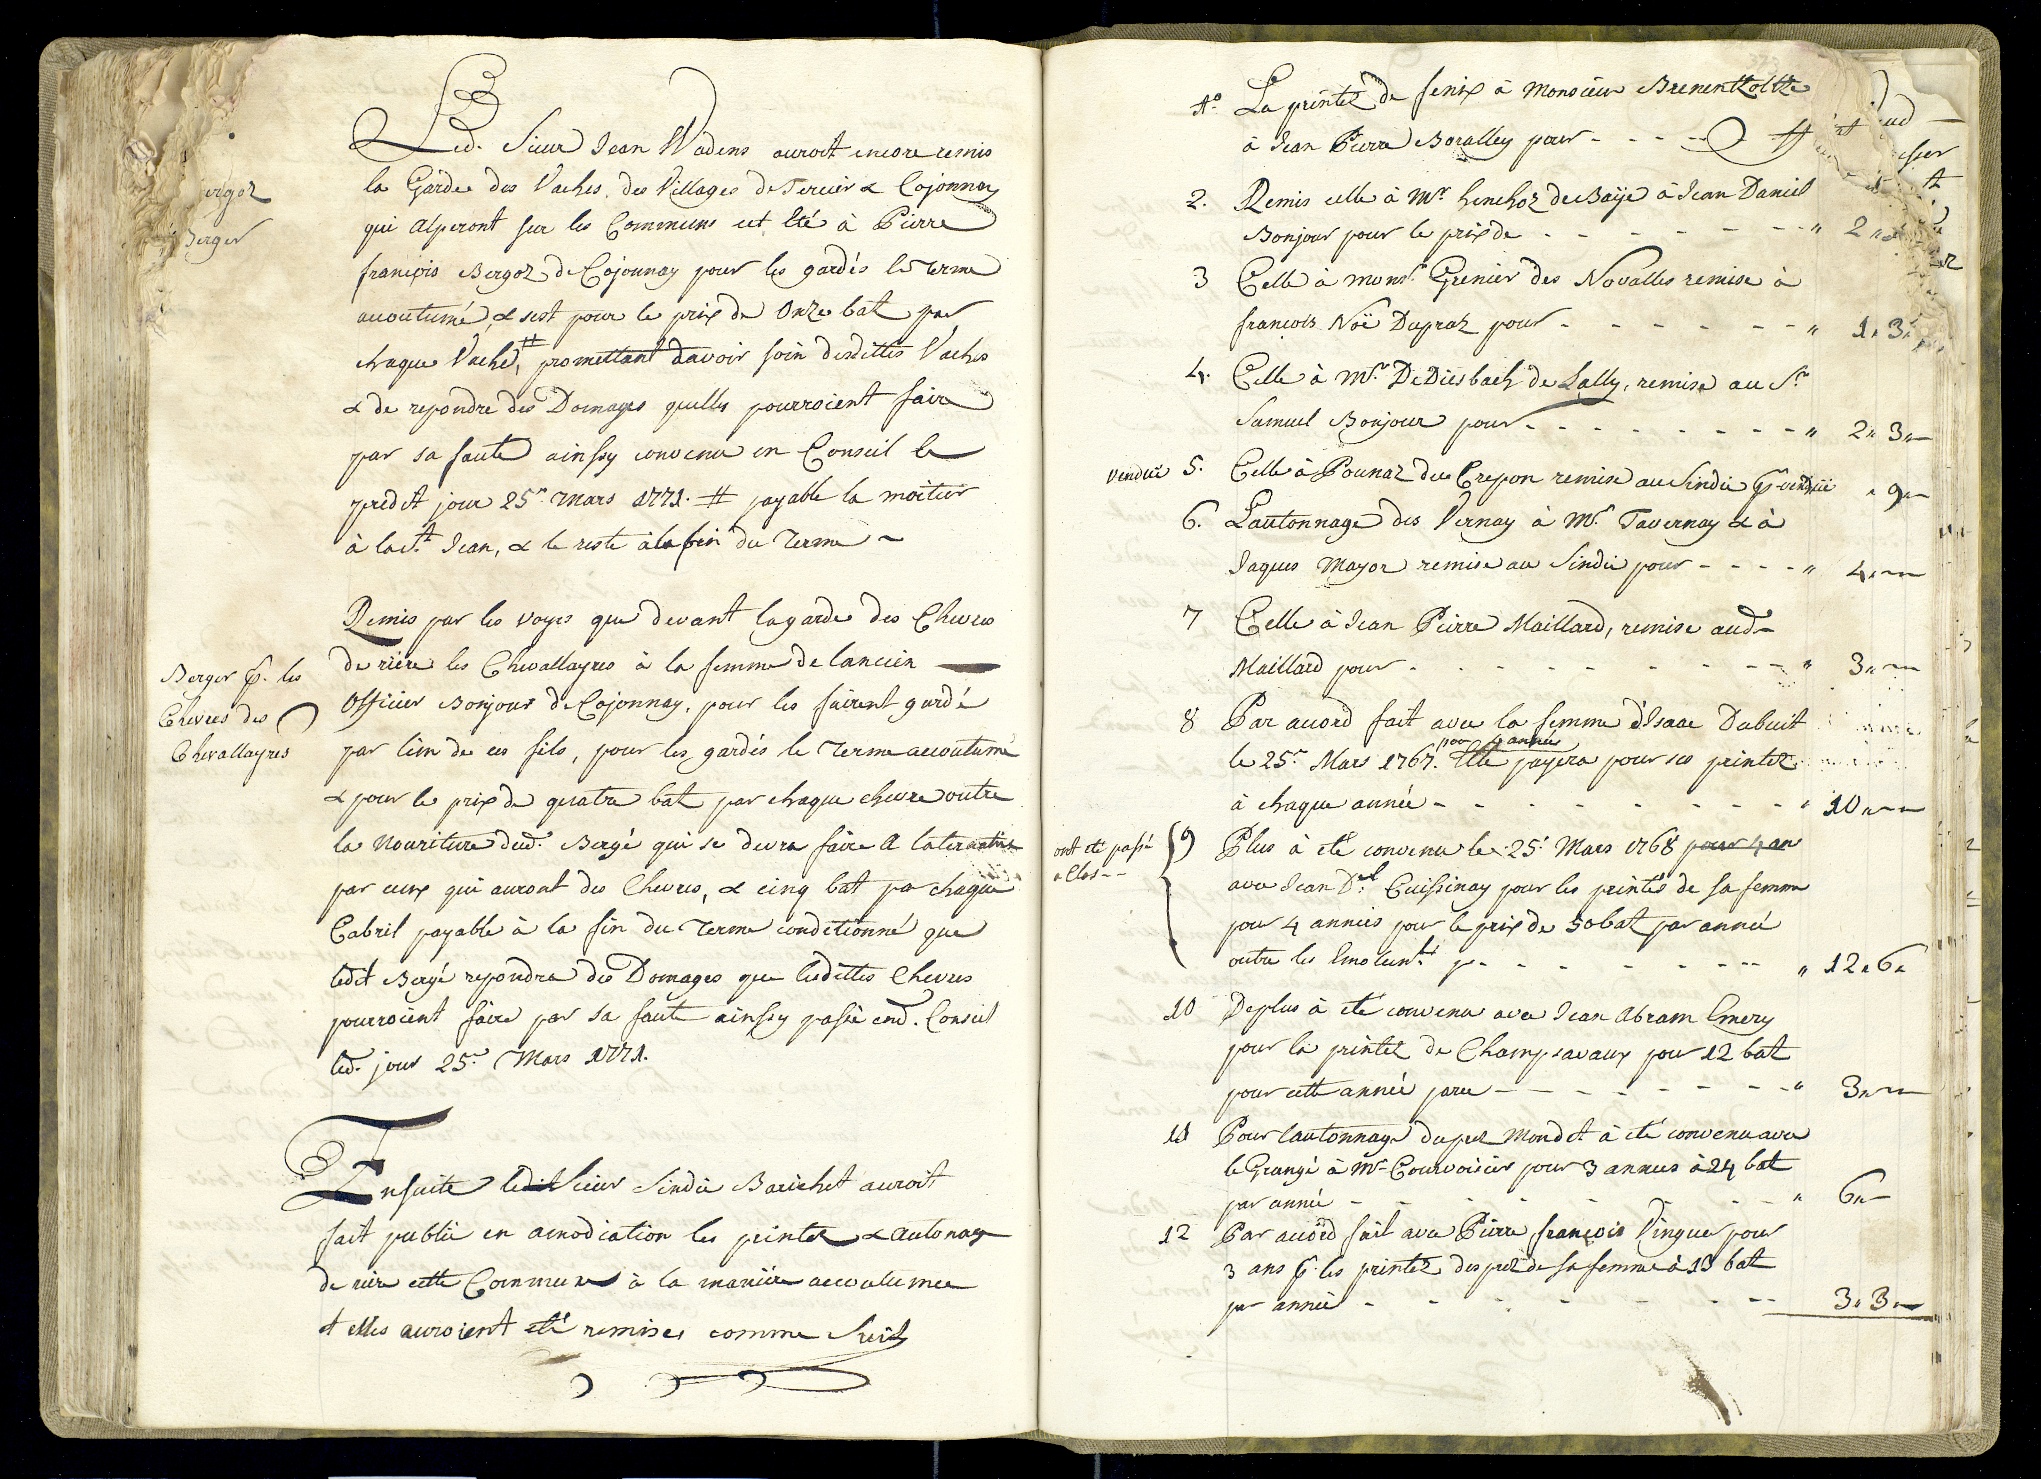 Led. Sieur Jean Wadens auroit encore remis
la Garde des Vaches des Villages de Tercier & Cojonnay
qui alperont sur les Communs cet Eté à Pierre
françois Bergoz de Cojonnay pour les gardés le Terme
accoutumé, & sest pour le prix de Onze bat par
chaque Vache, # promettant davoir soin desdittes Vaches
& de repondre des Domages quelles pourroient faire
par sa faute ainssy convenu en Conseil le
predit jour 25e. Mars 1771. # payable la moitier
à la St. Jean, & le reste à la fin du Terme ~
ergoz
Berger
Remis par les voyes que devant la garde des Chevres
de riére les Chevallayres à la femme de lancien
Officier Bonjour de Cojonnay, pour les fairent gardé
par lun de ces fils, pour les gardés le Terme accoutumé
& pour le prix de quatre bat par chaque chevre outre
la Nouriture dud. Bergé qui se devra faire a laternative
par ceux qui auront des Chevres, & cinq bat par chaque
Cabril payable à la fin du Terme conditionné que
ledit Bergé repondra des Domages que lesdittes Chevres
pourroient faire par sa faute ainssy passé end. Conseil
led. jour 25e. Mars 1771.
Berger p. les
Chevres des
Chevallayres
Ensuite ledit Sieur Sindic Barichet auroit
fait publié en amodiation les printez & autonage
de riére cette Commune à la maniére accoutumee
& elles auroient eté remises comme Suit
1o. La printez de fenix à Monsieur
à Jean Pierre Boralley pour - - - -
2. Remis celle à Mr. henchoz de Baÿe à Jean Daniel
Bonjour pour le prix de - - - - - - - " 2 "
3 Celle à mons. Grenier des Novalles remise à
francois Noë Dupraz pour - - - - - - - " 1 " 3 "
4. Celle à Mr. De Diesbach de Lally, remise au Sr.
Samuel Bonjour pour - - - - - - - - " 2 " 3 " —
vendüe 5. Celle à Pounaz du Crepon remise au Sindic p. vendüe " 9 " —
6. Lautonnage des Vernay à Mr. Tavernay & à
Jaques Mayor remise au Sindic pour - - - - " 4 " —
7 Celle à Jean Pierre Maillard, remise aud.
Maillard pour - - - - - - - - - " 3 " —
8 Par accord fait avec la femme d'Isaac Dubuit
pour 4 année
le 25e. Mars 1767. Elle payera pour ses printez
à chaque année - - - - - - - - - " 10 " —
ont eté passé
9 Plus à eté convenu le 25e. Mars 1768 pour 4 an
avec Jean Dl. Cuissinay pour les printés de sa femme
pour 4 années pour le prix de 50 bat par année
outre les Emolumts. p - - - - - - - - " 12 " 6 "
10 Deplus à eté convenu avec Jean Abram Emery
pour la printez de Champsavaux pour 12 bat
pour cette année parce - - - - - - - - " 3 " —
11 Pour lautonnage du prez Mondet à eté convenu avec
le Grangé à Mr. Courvoisier pour 3 annees à 24 bat
par année - - - - - - - - " 6 " —
12 Par accord fait avec Pierre françois Vingue pour
3 ans p. les printez des prez de sa femme à 13 bat
par année - - - - - - - - 3 " 3 " —